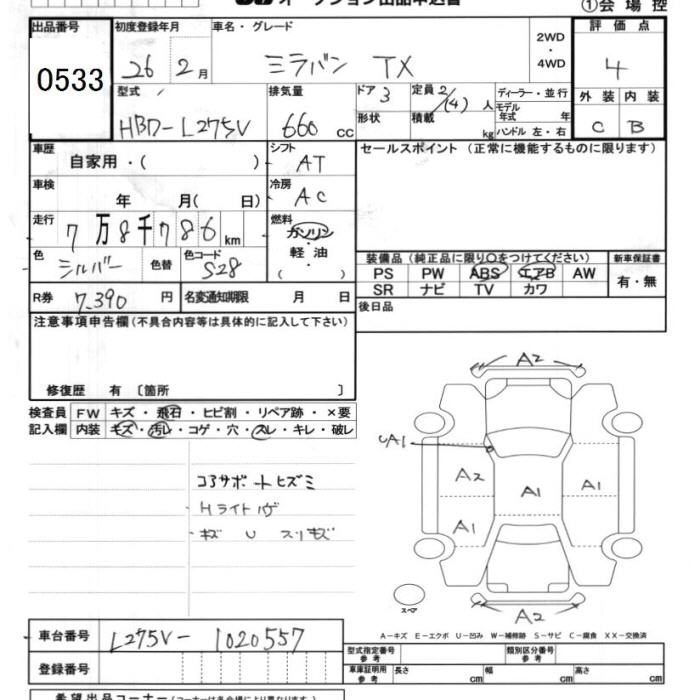 オークション出品申込書
①会場控
出品番号 初度登録年月 車名・グレード 評価点
0533 26 2月 ミラバン TX 2WD・4WD 4
型式 排気量 ドア 3 定員 2/(4)人 ディーラー・並行 外装 内装
HBD-L275V 660 cc 形状 積載 kg モデル年式 年 C B
ハンドル 左・右
車歴 自家用・( ) シフト AT セールスポイント (正常に機能するものに限ります)
車検 年 月( 日) 冷房 AC
走行 7万8千786km 燃料 ガソリン・軽油・( )
色 シルバー 色替 色コード S28 装備品 (純正品に限り○をつけてください) 新車保証書
PS PW ABS エアB AW 有・無
SR ナビ TV カワ
R券 7,390 円 名変通知期限 月 日 後日品
注意事項申告欄 (不具合内容等は具体的に記入して下さい)
修復歴 有 〔箇所 〕
検査員 FW キズ・飛石・ヒビ割・リペア跡・×要
記入欄 内装 キズ・汚レ・コゲ・穴・スレ・キレ・破レ
コアサポートヒズミ
Hライト
キズ U スリキズ
A2
UA1
A2 A1 A1
A1
スペア
A2
A-キズ E-エクボ U-凹み W-補修跡 S-サビ C-腐食 XX-交換済
車台番号 L275V-1020557
型式指定番号 参考 類別区分番号 参考
登録番号 車庫証明用 参考 長さ cm 幅 cm 高さ cm
希望出品コーナー